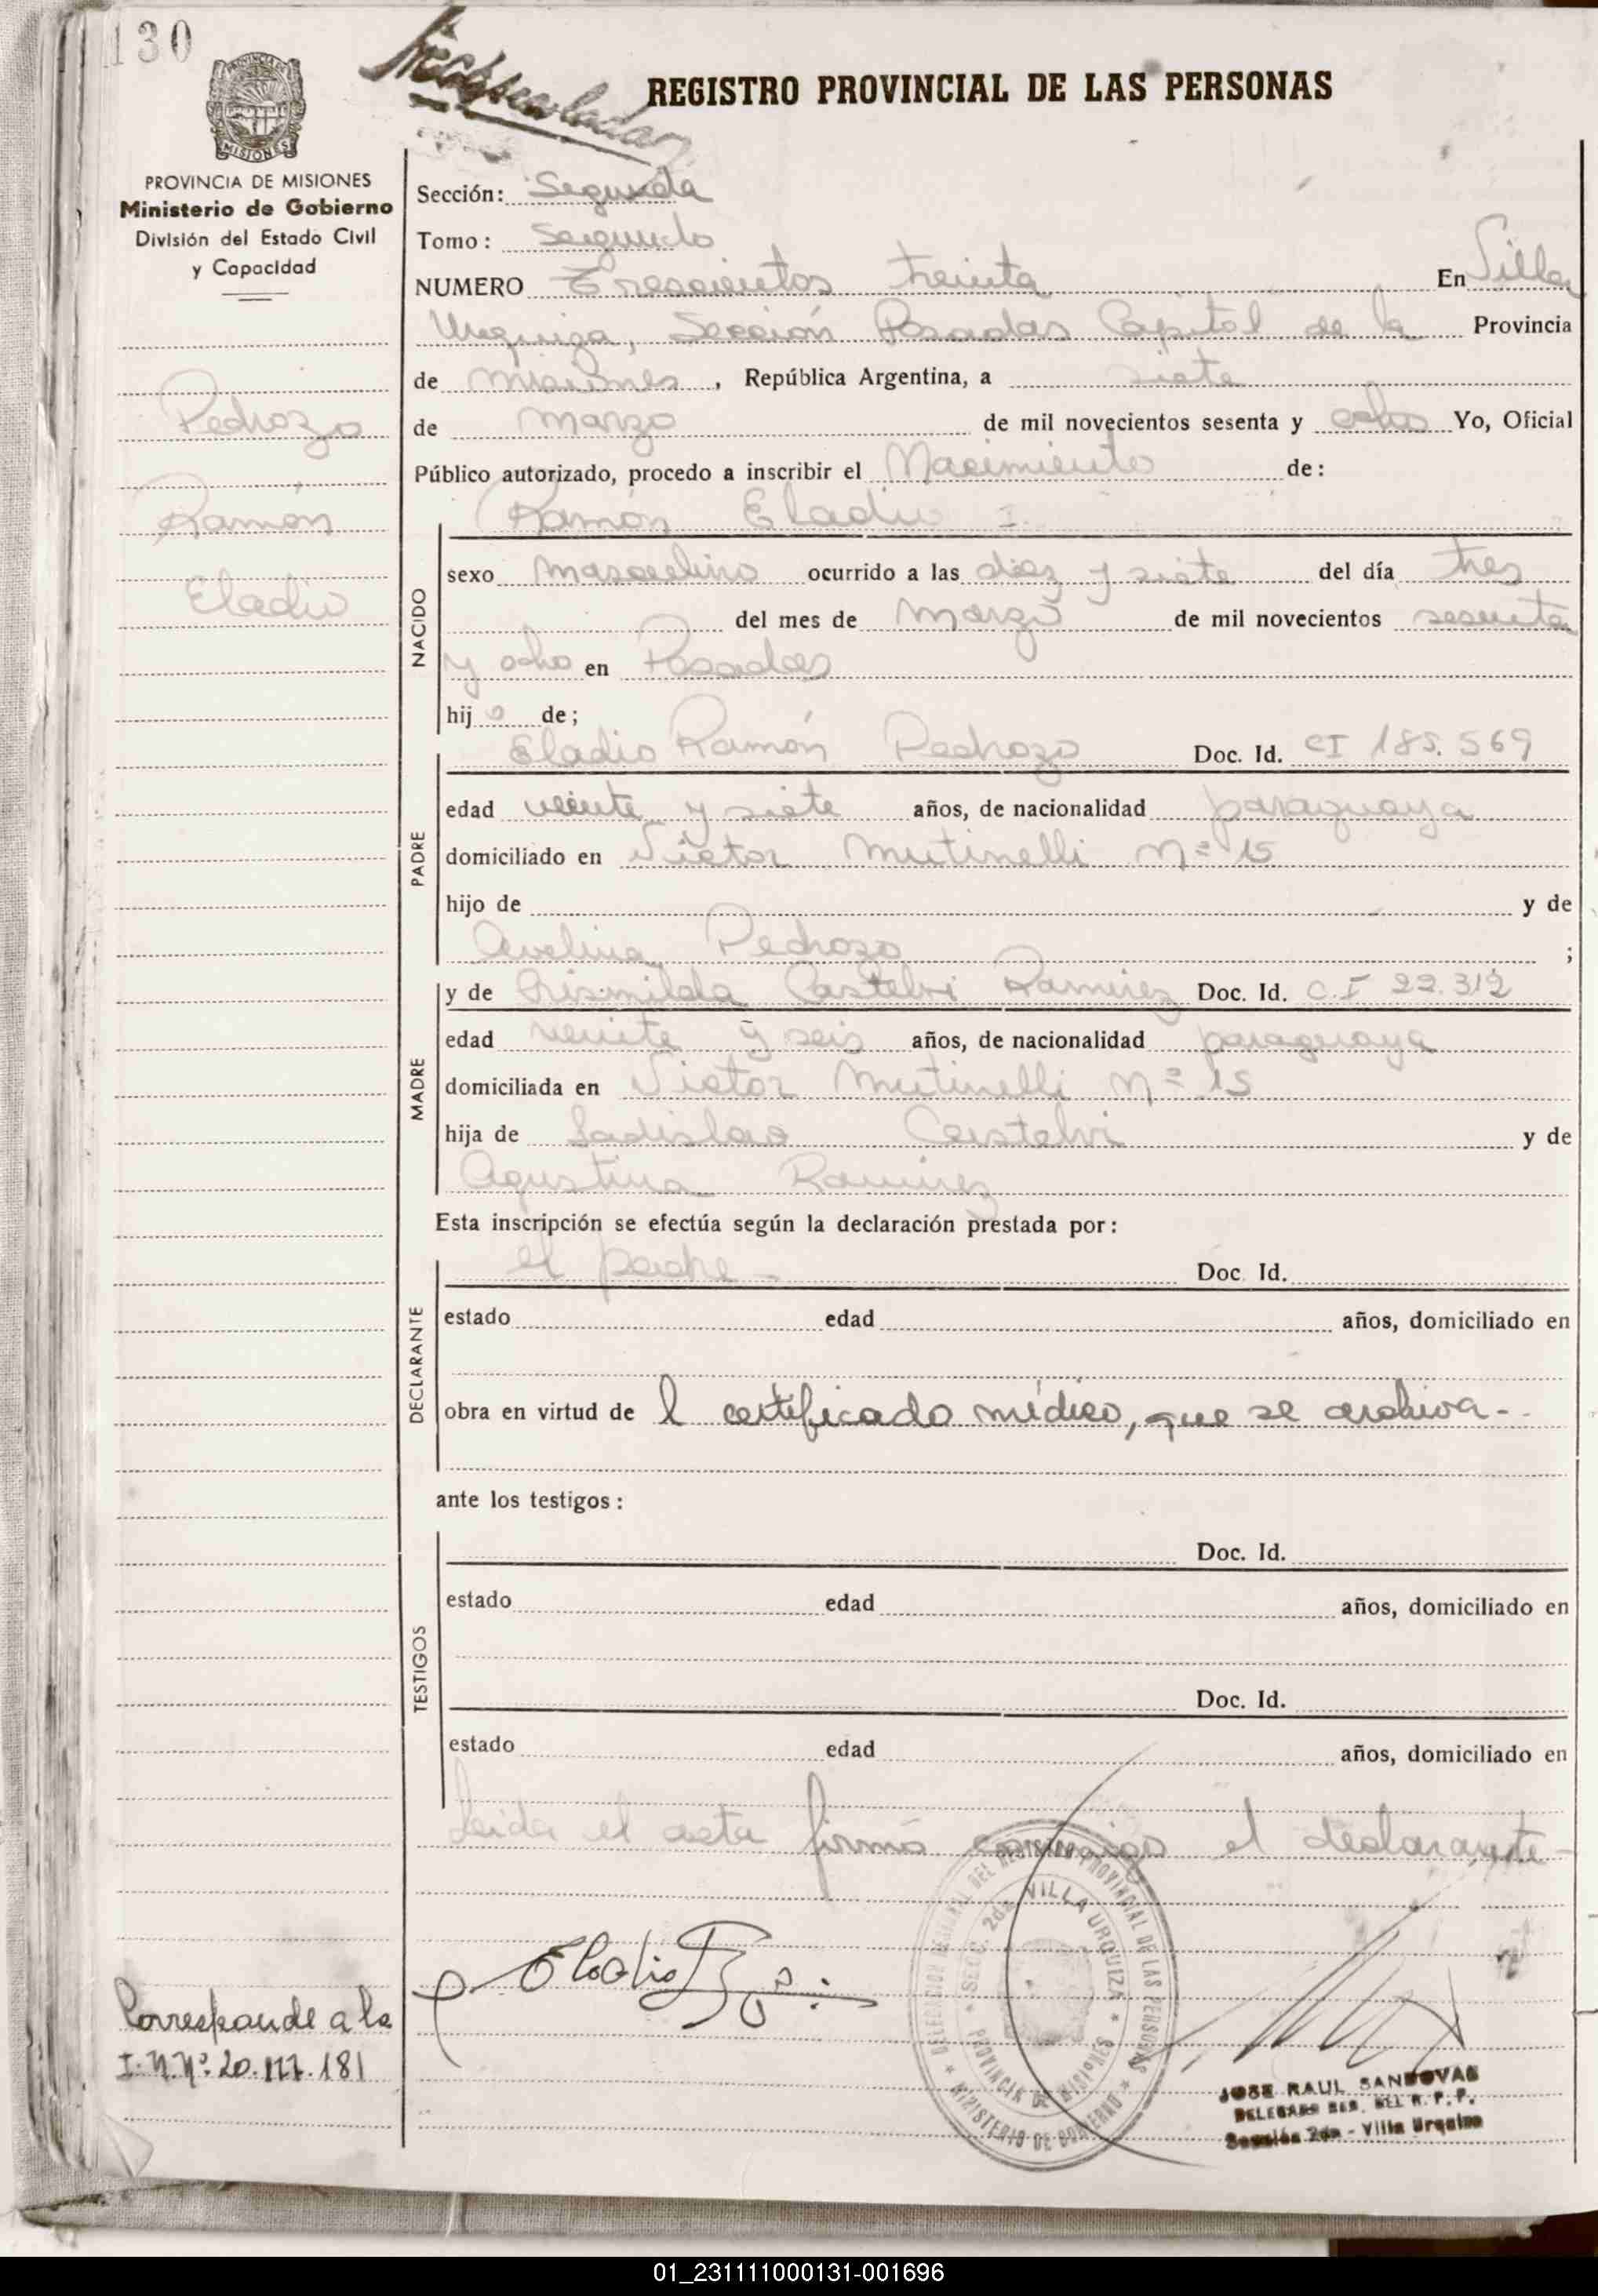 130
REGISTRO PROVINCIAL DE LAS PERSONAS
MISIONES
PROVINCIA DE MISIONES
Ministerio de Gobierno
División del Estado Civil
y Capacidad
Pedrozo
Ramón
Eladio
Sección: Segunda
Tomo: Segundo
NUMERO Trescientos treinta En Villa
Urquiza, Sección Posadas Capital de la Provincia
de Misiones, República Argentina, a siete
de marzo de mil novecientos sesenta y ocho Yo, Oficial
Público autorizado, procedo a inscribir el Nacimiento de:
Ramón Eladio
NACIDO
sexo masculino ocurrido a las diez y siete del día tres
del mes de Marzo de mil novecientos sesenta
y ocho en Posadas
hijo de;
PADRE
Eladio Ramón Pedrozo Doc. Id. CI 185.569
edad veinte y siete años, de nacionalidad paraguaya
domiciliado en Victor Mutinelli Nº 15
hijo de y de
Avelina Pedrozo ;
MADRE
y de Crismilda Castelvi Ramirez Doc. Id. C.I 22.312
edad veinte y seis años, de nacionalidad paraguaya
domiciliada en Victor Mutinelli Nº 15
hija de Ladislao Castelvi y de
Agustina Ramirez
Esta inscripción se efectúa según la declaración prestada por:
DECLARANTE
el padre - Doc. Id.
estado edad años, domiciliado en
obra en virtud de l certificado médico, que se archiva.-
ante los testigos:
TESTIGOS
Doc. Id.
estado edad años, domiciliado en
Doc. Id.
estado edad años, domiciliado en
Leida el acta firmó conmigo el declarante-
Eladio
DELEGACION SECCIONAL DEL REGISTRO PROVINCIAL DE LAS PERSONAS
SECC. 2da. VILLA URQUIZA
PROVINCIA DE MISIONES
MINISTERIO DE GOBIERNO
Corresponde a la
I.N.Nº. 20.177.181
JOSE RAUL SANDOVAL
DELEGADO SEC. DEL R. P. P.
Sección 2da - Villa Urquiza
01_231111000131-001696